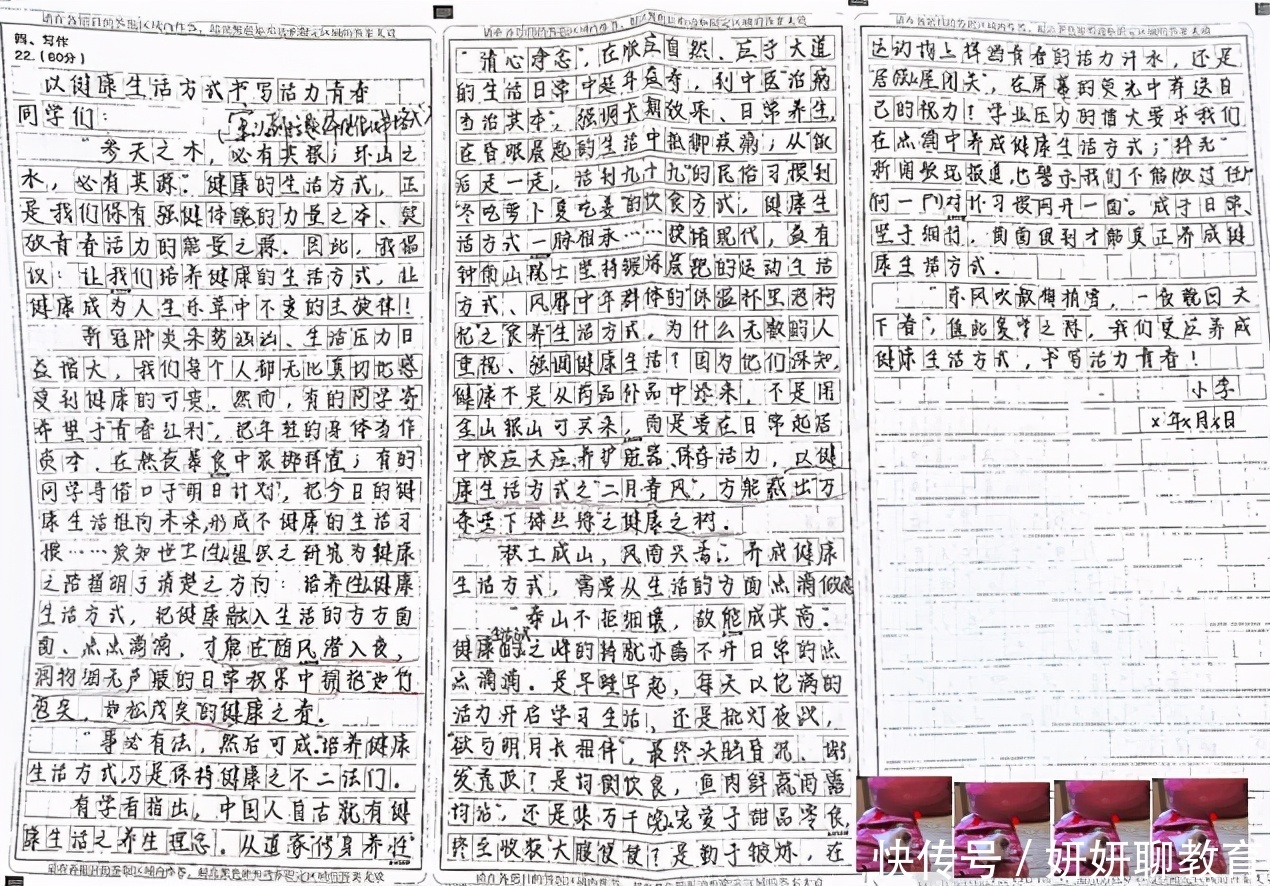 四、写作
22.(60分)
以健康生活方式书写活力青春
同学们：
"参天之木，必有其根；环山之
水，必有其源。"健康的生活方式，正
是我们保有强健体魄的力量之本、绽
放青春活力的能量之源。因此，我倡
议：让我们培养健康的生活方式，让
健康成为人生乐章中不变的主旋律！
新冠肺炎来势汹汹、生活压力日
益增大，我们每个人都无比真切地感
受到健康的可贵。然而，有的同学寄
希望于"青春红利"，把年轻的身体当作
资本，在熬夜暴食中
；有的
同学寻借口于"明日计划"，把今日的健
康生活推向未来，形成不健康的生活习
惯……须知世卫组织之研究为健康
之路指明了清楚之方向：培养健康
生活方式，把健康融入生活的方方面
面、点点滴滴，才能在随风潜入夜，
润物细无声般的日常积累中拥抱如竹
苞矣，如松茂矣的健康之春。
"事必有法，然后可成。"培养健康
生活方式，乃是保持健康之不二法门。
有学者指出，中国人自古就有健
康生活之养生理念。从道家"修身养性"
"清心净念"，在顺应自然、应于大道
的生活日常中延年益寿，到中医"治病
当治其本"，强调长期效果、日常养生，
在昏眠晨起的生活中抵御疾病；从"饭
后走一走，活到九十九"的民俗习惯到
"冬吃萝卜夏吃姜"的饮食方式，健康生
活方式一脉相承……放诸现代，益有
钟南山院士坚持锻炼晨跑的运动生活
方式、风靡中年群体的"保温杯里泡枸
杞"之食养生活方式。为什么无数的人
重视、强调健康生活？因为他们深知，
健康不是从药品补品中捡来，不是用
金山银山可买来，而是要在日常起居
中顺应天应养护脏器、保存活力，以健
康生活方式之"二月春风"，方能裁出"万
条垂下绿丝绦"之健康之树。
积土成山，风雨兴焉。养成健康
生活方式，需要从生活的方面点滴做起
"泰山不拒细壤，故能成其高。"
健康生活方式之峰的挺脱亦离不开日常的点
点滴滴。是早睡早起，每天以饱满的
活力开启学习生活，还是挑灯夜战，
"欲与明月长相伴"，最终头脑昏沉、
发荒废？是均衡饮食，鱼肉鲜蔬雨露
均沾，还是集万千宠爱于甜品零食，
终至收获"大腹便便"？是勤于锻炼，在
运动场上挥洒青春的活力汗水，还是
居家"屋闭关"，在屏幕的荧光中葬送自
己的视力！学业压力的增大要求我们
在点滴中养成健康生活方式；"
新闻频现报道，也警示我们不能放过任
何一个"对坏习惯网开一面"。成于日常、
坚于细行，面面俱到才能真正养成健
康生活方式。
"东风吹散梅梢雪，一夜挽回天
下春"，值此复学之际，我们更应养成
健康生活方式，书写活力青春！
小李
×年×月×日
快传号/妍妍聊教育